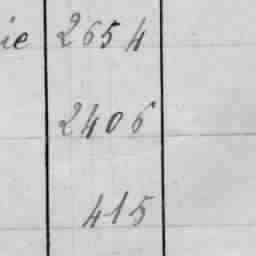 ie 2654
2406
415